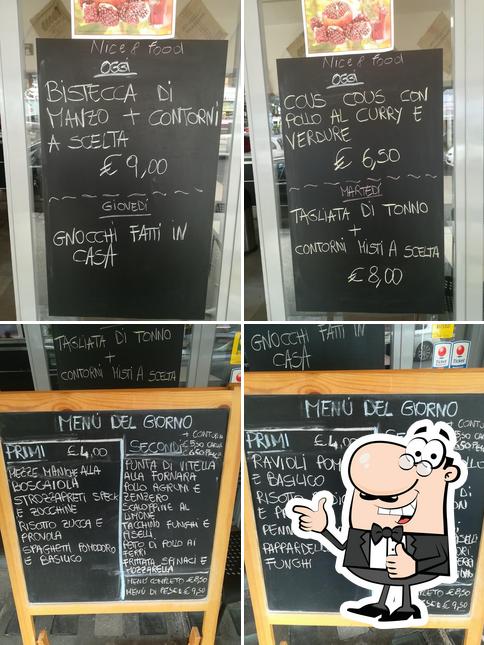 Nice & Food
OGGI
BISTECCA DI
MANZO + CONTORNI
A SCELTA
€ 9,00
GIOVEDÍ
GNOCCHI FATTI IN
CASA
Nice & Food
OGGI
COUS COUS CON
POLLO AL CURRY E
VERDURE
€ 6,50
MARTEDÍ
TAGLIATA DI TONNO
+
CONTORNI MISTI A SCELTA
€ 8,00
TAGLIATA DI TONNO
+
CONTORNI MISTI A SCELTA
MENÚ DEL GIORNO
PRIMI £4,00
MEZZE MANICHE ALLA
BOSCAIOLA
STROZZAPRETI SPECK
E ZUCCHINE
RISOTTO ZUCCA E
PROVOLA
SPAGHETTI POMODORO
E BASILICO
+ CONTORNI
SECONDI
PUNTA DI VITELLA
ALLA FORNARA
POLLO AGRUMI E
ZENZERO
SCALOPPINE AL
LIMONE
TACCHINO FUNGHI E
PISELLI
PETO DI POLLO AI
FERRI
FRITTATA SPINACI E
MOZZARELLA
MENÚ COMPLETO €8,50
MENÚ DI PESCE €9,50
GNOCCHI FATTI IN
CASA
MENÚ DEL GIORNO
PRIMI £4,00
RAVIOLI
E BASILICO
RISOTTO
E
PAPPARDELLE
FUNGHI
€8,50
€9,50